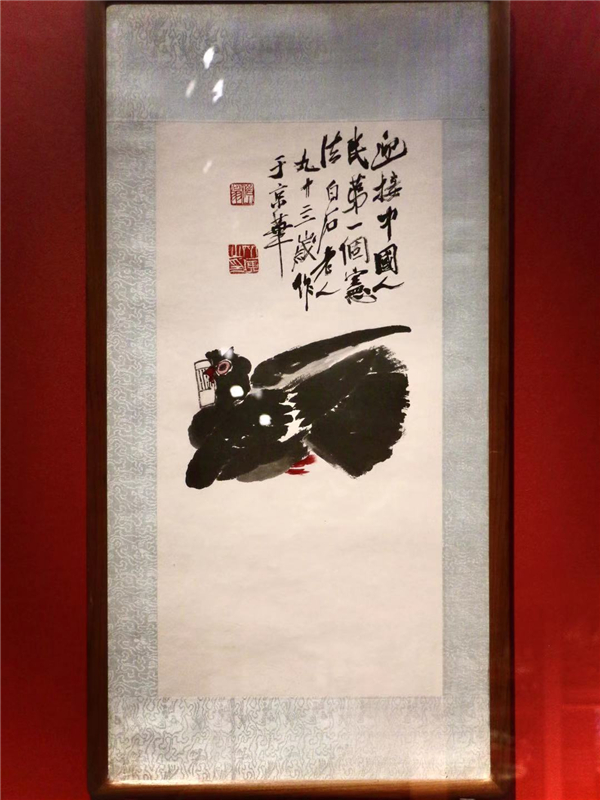 迎接中國人
民第一個憲
法白石老人
九十三歲作
于京華